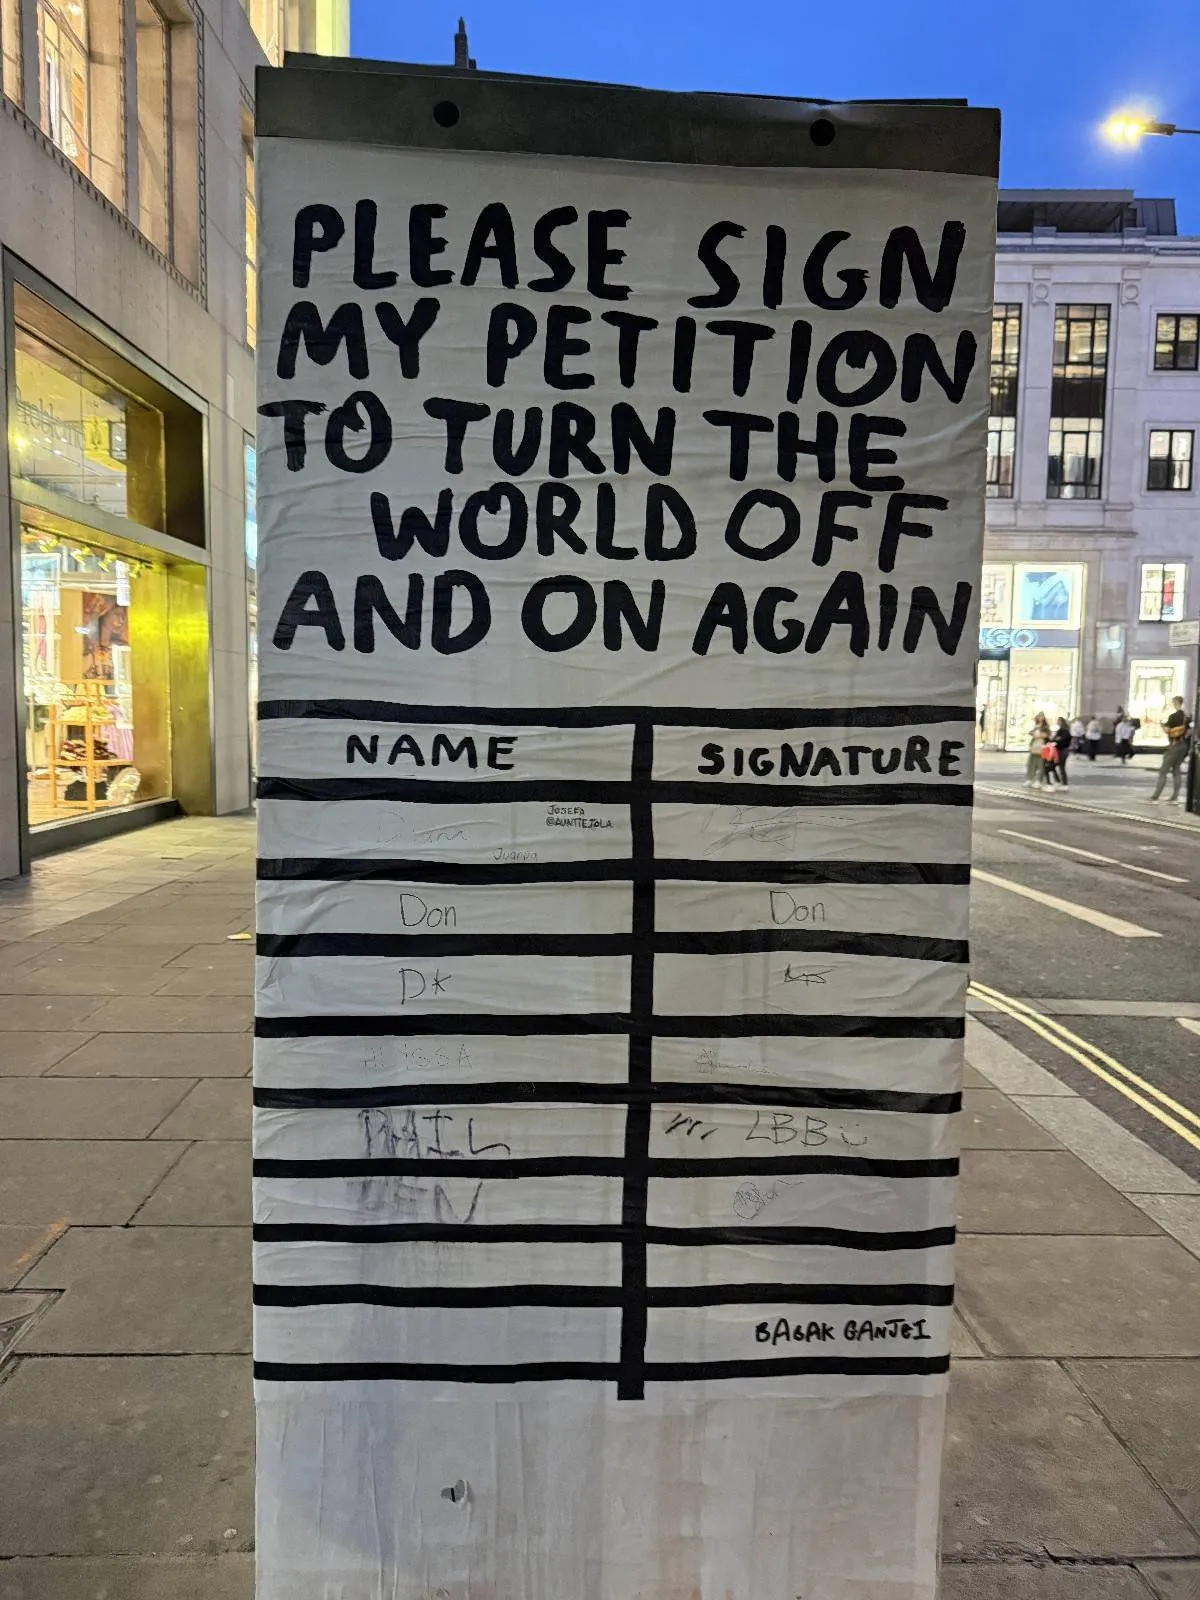 PLEASE SIGN
MY PETITION
TO TURN THE
WORLD OFF
AND ON AGAIN
NAME SIGNATURE
JOSEFA
@AUNTIEJOLA
Juanna
Don Don
DK
ALYSSA
LBB
BABAK GANJEI